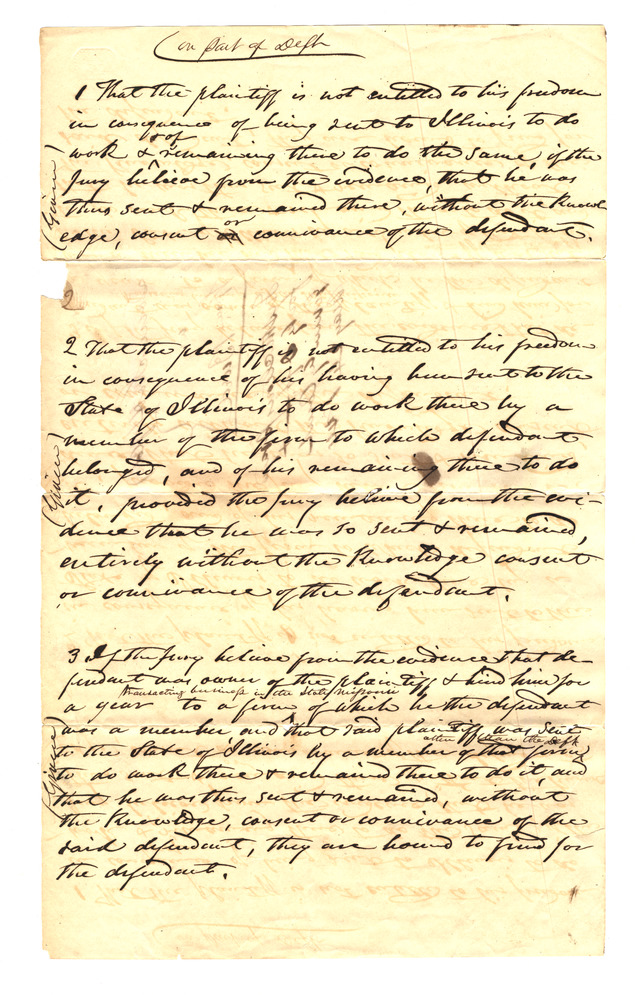 (on part of Deft
1 That the plaintiff is not entitled to his freedom
in consequence of being sent to Illinois to do
& of
work & remaining there to do the same, if the
Jury believe from the evidence, that he was
thus sent & remained there, without the knowl
or
edge, consent or connivance of the defendant.
(Given)
2
2 That the plaintiff is not entitled to his freedom
in consequence of his having been sent to the
State of Illinois to do work there by a
member of the firm to which defendant
belonged, and of his remaining there to do
it, provided the jury believe from the evi-
dence that he was so sent & remained,
entirely without the knowledge consent
or connivance of the defendant.
(Given)
3 If the Jury believe from the evidence that de-
fendant was owner of the plaintiff & hired him for
transacting business in the State Missouri
a year to a firm of which he the defendant
was a member, and that said plaintiff was sent
other than the Deft
to the State of Illinois by a member of that firm
to do work there & remained there to do it, and
that he was thus sent & remained, without
the knowledge, consent or connivance of the
said defendant, they are bound to find for
the defendant.
(Given)